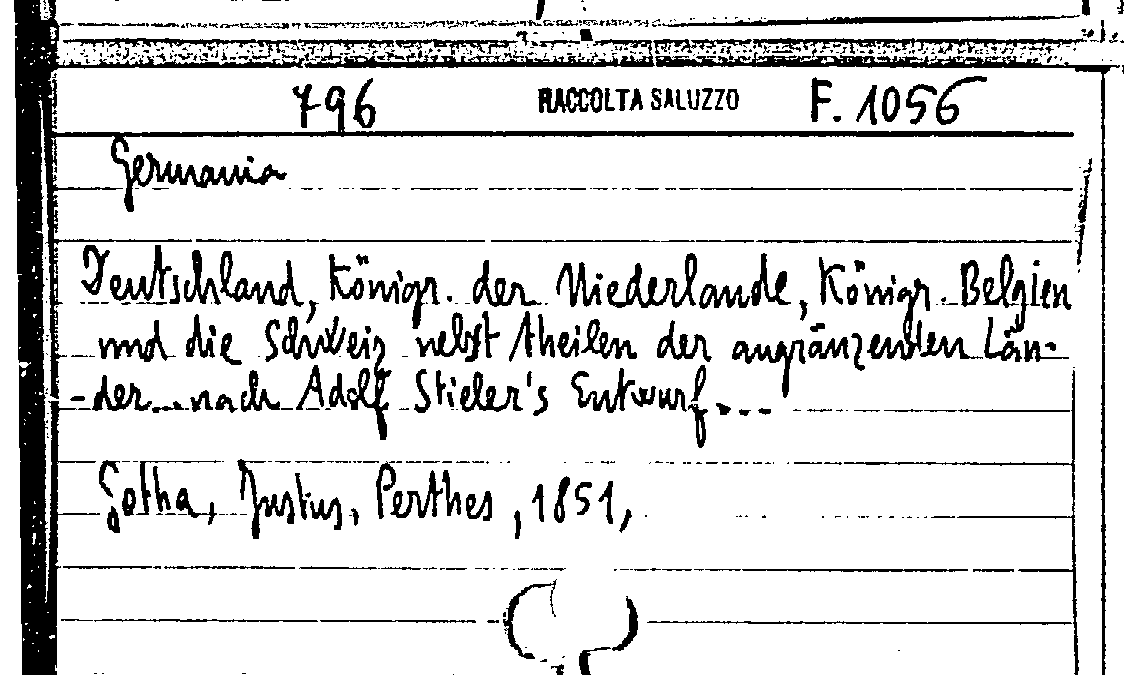 796 RACCOLTA SALUZZO F. 1056
Germania
Deutschland, Königr. der Niederlande, Königr. Belgien
und die Schweiz nebst theilen der angränzenden Län-
-der...nach Adolf Stieler's Entwurf...
Gotha, Justus, Perthes, 1851,